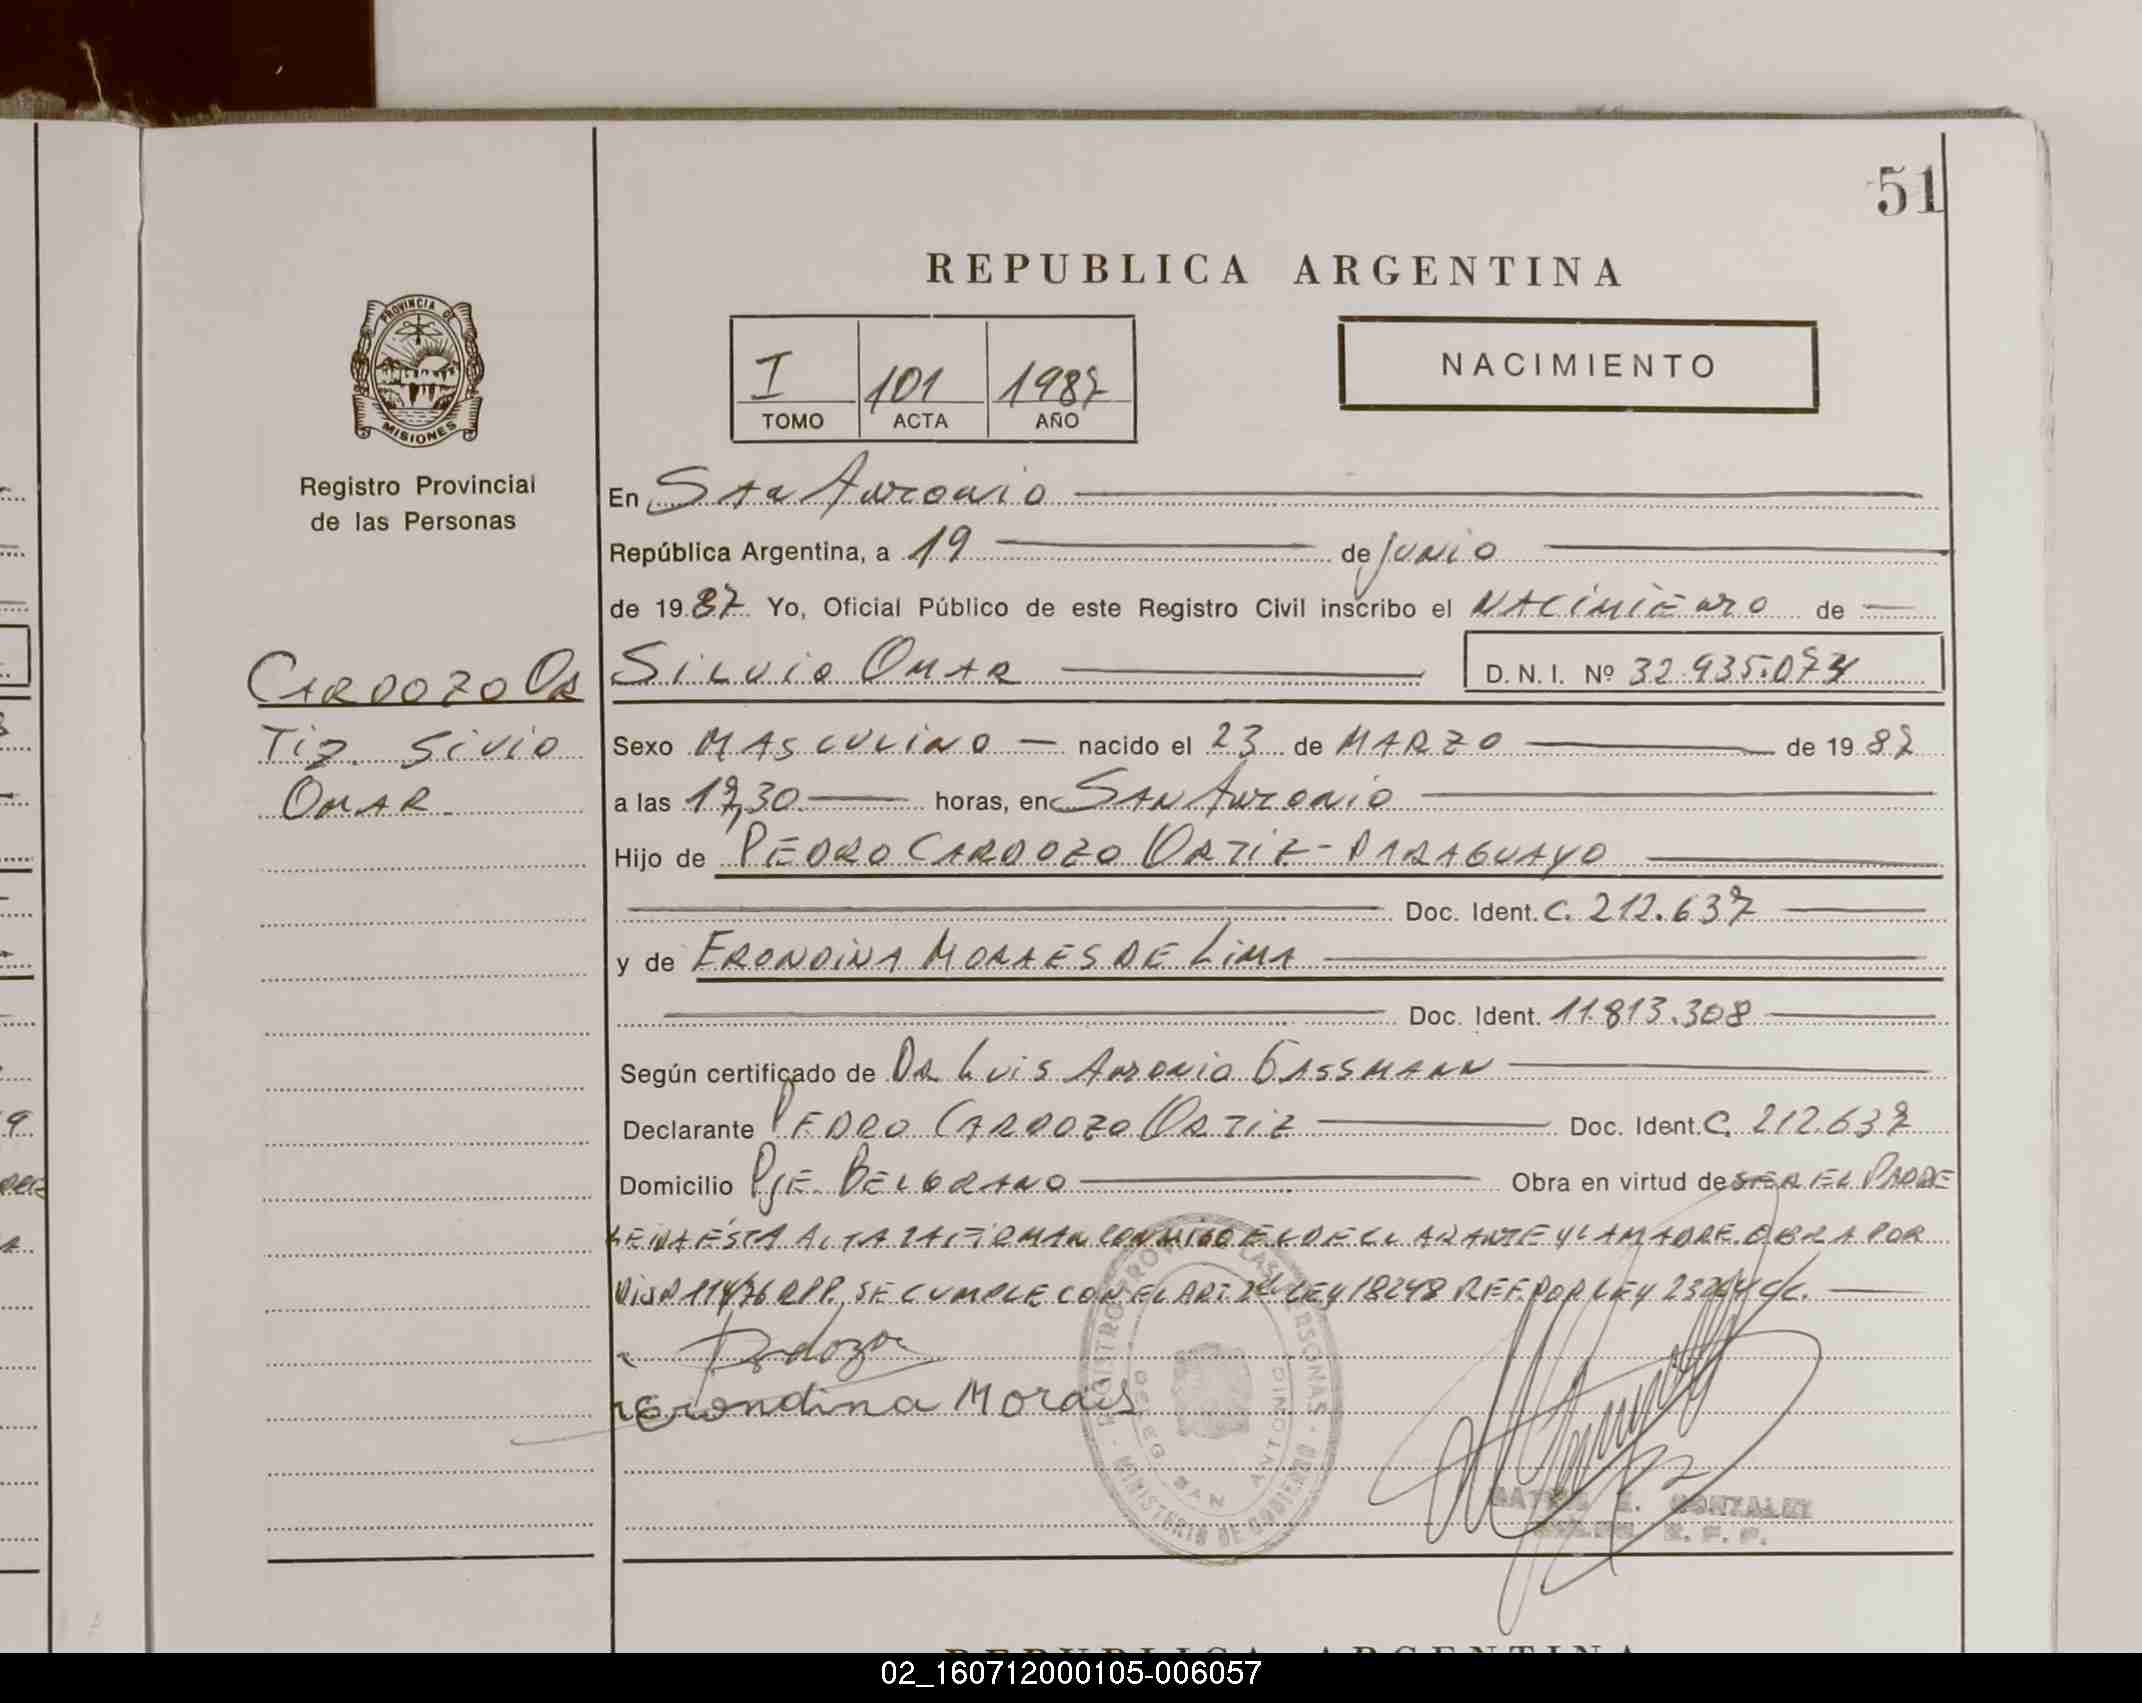 51
REPUBLICA ARGENTINA
PROVINCIA DE
MISIONES
Registro Provincial
de las Personas
I 101 1987
TOMO ACTA AÑO
NACIMIENTO
En San Antonio
República Argentina, a 19 de Junio
de 1987 Yo, Oficial Público de este Registro Civil inscribo el NACIMIENTO de
CARDOZO OR
SILVIO OMAR
D. N. I. Nº 32.935.074
TIZ. SILVIO
Sexo MASCULINO nacido el 23 de MARZO de 1987
OMAR
a las 17,30 horas, en SAN Antonio
Hijo de PEDRO CARDOZO ORTIZ - PARAGUAYO
Doc. Ident. C. 212.637
y de ERONDINA MORAES DE LIMA
Doc. Ident. 11.813.308
Según certificado de DR LUIS Antonio GASSMANN
Declarante PEDRO CARDOZO ORTIZ Doc. Ident. C. 212.637
Domicilio PJE. BELGRANO Obra en virtud de SER EL PADRE
LEIDA ÉSTA ACTA LA FIRMAN CONMIGO EL DECLARANTE Y LA MADRE. OBRA POR
DISP 114/76 RPP. SE CUMPLE CON EL ART LEY 18248 REF POR LEY
Erondina Morais
REGISTRO PROV LAS PERSONAS
DELEG. SAN ANTONIO
MINISTERIO DE GOBIERNO
GONZALEZ
REPUBLICA ARGENTINA
02_160712000105-006057